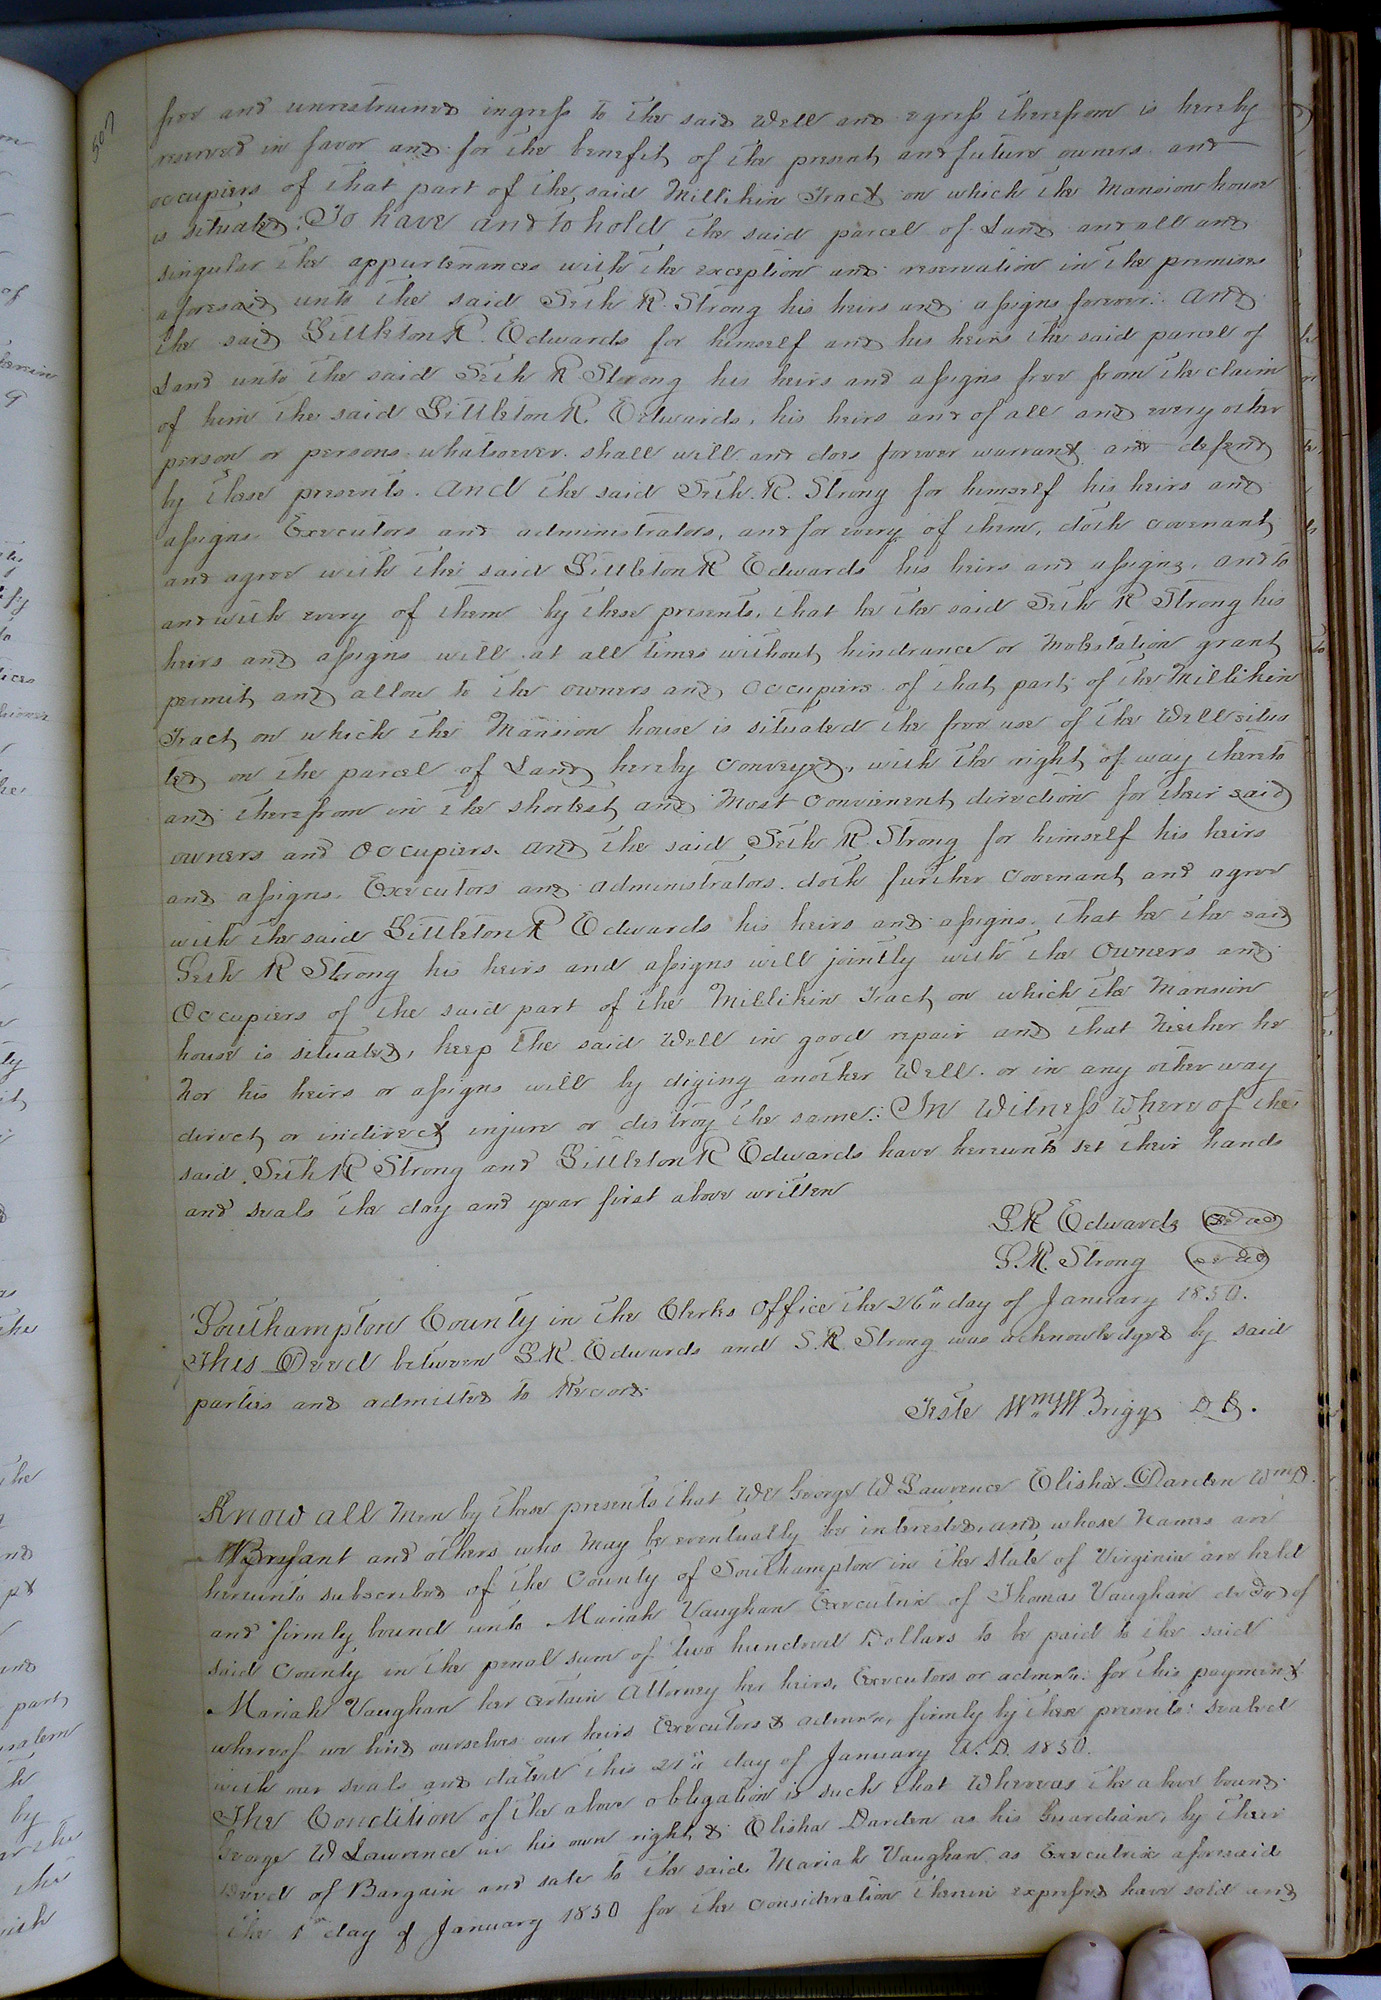 507
free and unrestrained ingress to the said Well and egress therefrom is hereby
reserved in favor and for the benefit of the present and future owners and
occupiers of that part of the said Millikin Tract on which the Mansion house
is situated: To have and to hold the said parcel of Land and all and
singular the appurtenances with the exception and reservation in the premises
aforesaid unto the said Seth R. Strong his heirs and assigns forever: And
the said Littleton R. Edwards for himself and his heirs the said parcel of
Land unto the said Seth R Strong his heirs and assigns free from the claim
of him the said Littleton R. Edwards, his heirs and of all and every other
person or persons whatsoever shall will and does forever warrant and defend
by these presents. And the said Seth. R. Strong for himself his heirs and
assigns Executors and administrators, and for every of them, doth covenant
and agree with the said Littleton R Edwards his heirs and assigns, and to
and with every of them by these presents, that he the said Seth R Strong his
heirs and assigns will at all times without hindrance or Molestation grant
permit and allow to the owners and Occupiers of that part of the Millikin
Tract on which the Mansion house is situated the free use of the Well situa
ted on the parcel of Land hereby conveyed, with the right of way thereto
and therefrom in the shortest and Most Convienent direction for their said
owners and Occupiers. And the said Seth R. Strong for himself his heirs
and assigns. Executors and administrators. doth further covenant and agree
with the said Littleton R Edwards his heirs and assigns. that he the said
Seth R Strong his heirs and assigns will jointly with the Owners and
Occupiers of the said part of the Millikin Tract on which the Mansion
house is situated, keep the said Well in good repair and that Neither he
Nor his heirs or assigns will by diging another Well. or in any other way
direct or indirect injure or distroy the same: In Witness Where of the
said Seth R Strong and Littleton R Edwards have hereunto set their hands
and seals the day and year first above written
L. R Edwards Seal
S. R. Strong Seal
Southampton County in the Clerks Office the 26th day of January 1850.
This Deed between L. R. Edwards and S. R. Strong was acknowledged by said
parties and admitted to Record.
Teste Wm W Briggs D. C.
Know all Men by these presents that We George W Lawrence Elisha Darden Wm D.
W Bryant and others who May be eventually be interested, and whose Names are
hereunto subscribed of the County of Southampton in the State of Virginia are held
and firmly bound unto Mariah Vaughan Executrix of Thomas Vaughan decd of
said County in the penal sum of two hundred Dollars to be paid to the said
Mariah Vaughan her certain Attorney her heirs, Executors or admrs. for this payment
whereof we bind ourselves our heirs Executors & admrs, firmly by these presents: sealed
with our seals and dated this 21st day of January A. D. 1850.
The Condition of the above obligation is such that Whereas the above bound
George W Lawrence in his own right & Elisha Darden as his Guardian, by their
Deed of Bargain and sale to the said Mariah Vaughan as Executrix aforesaid
the 1st day of January 1850 for the Consideration therein expressed have sold and